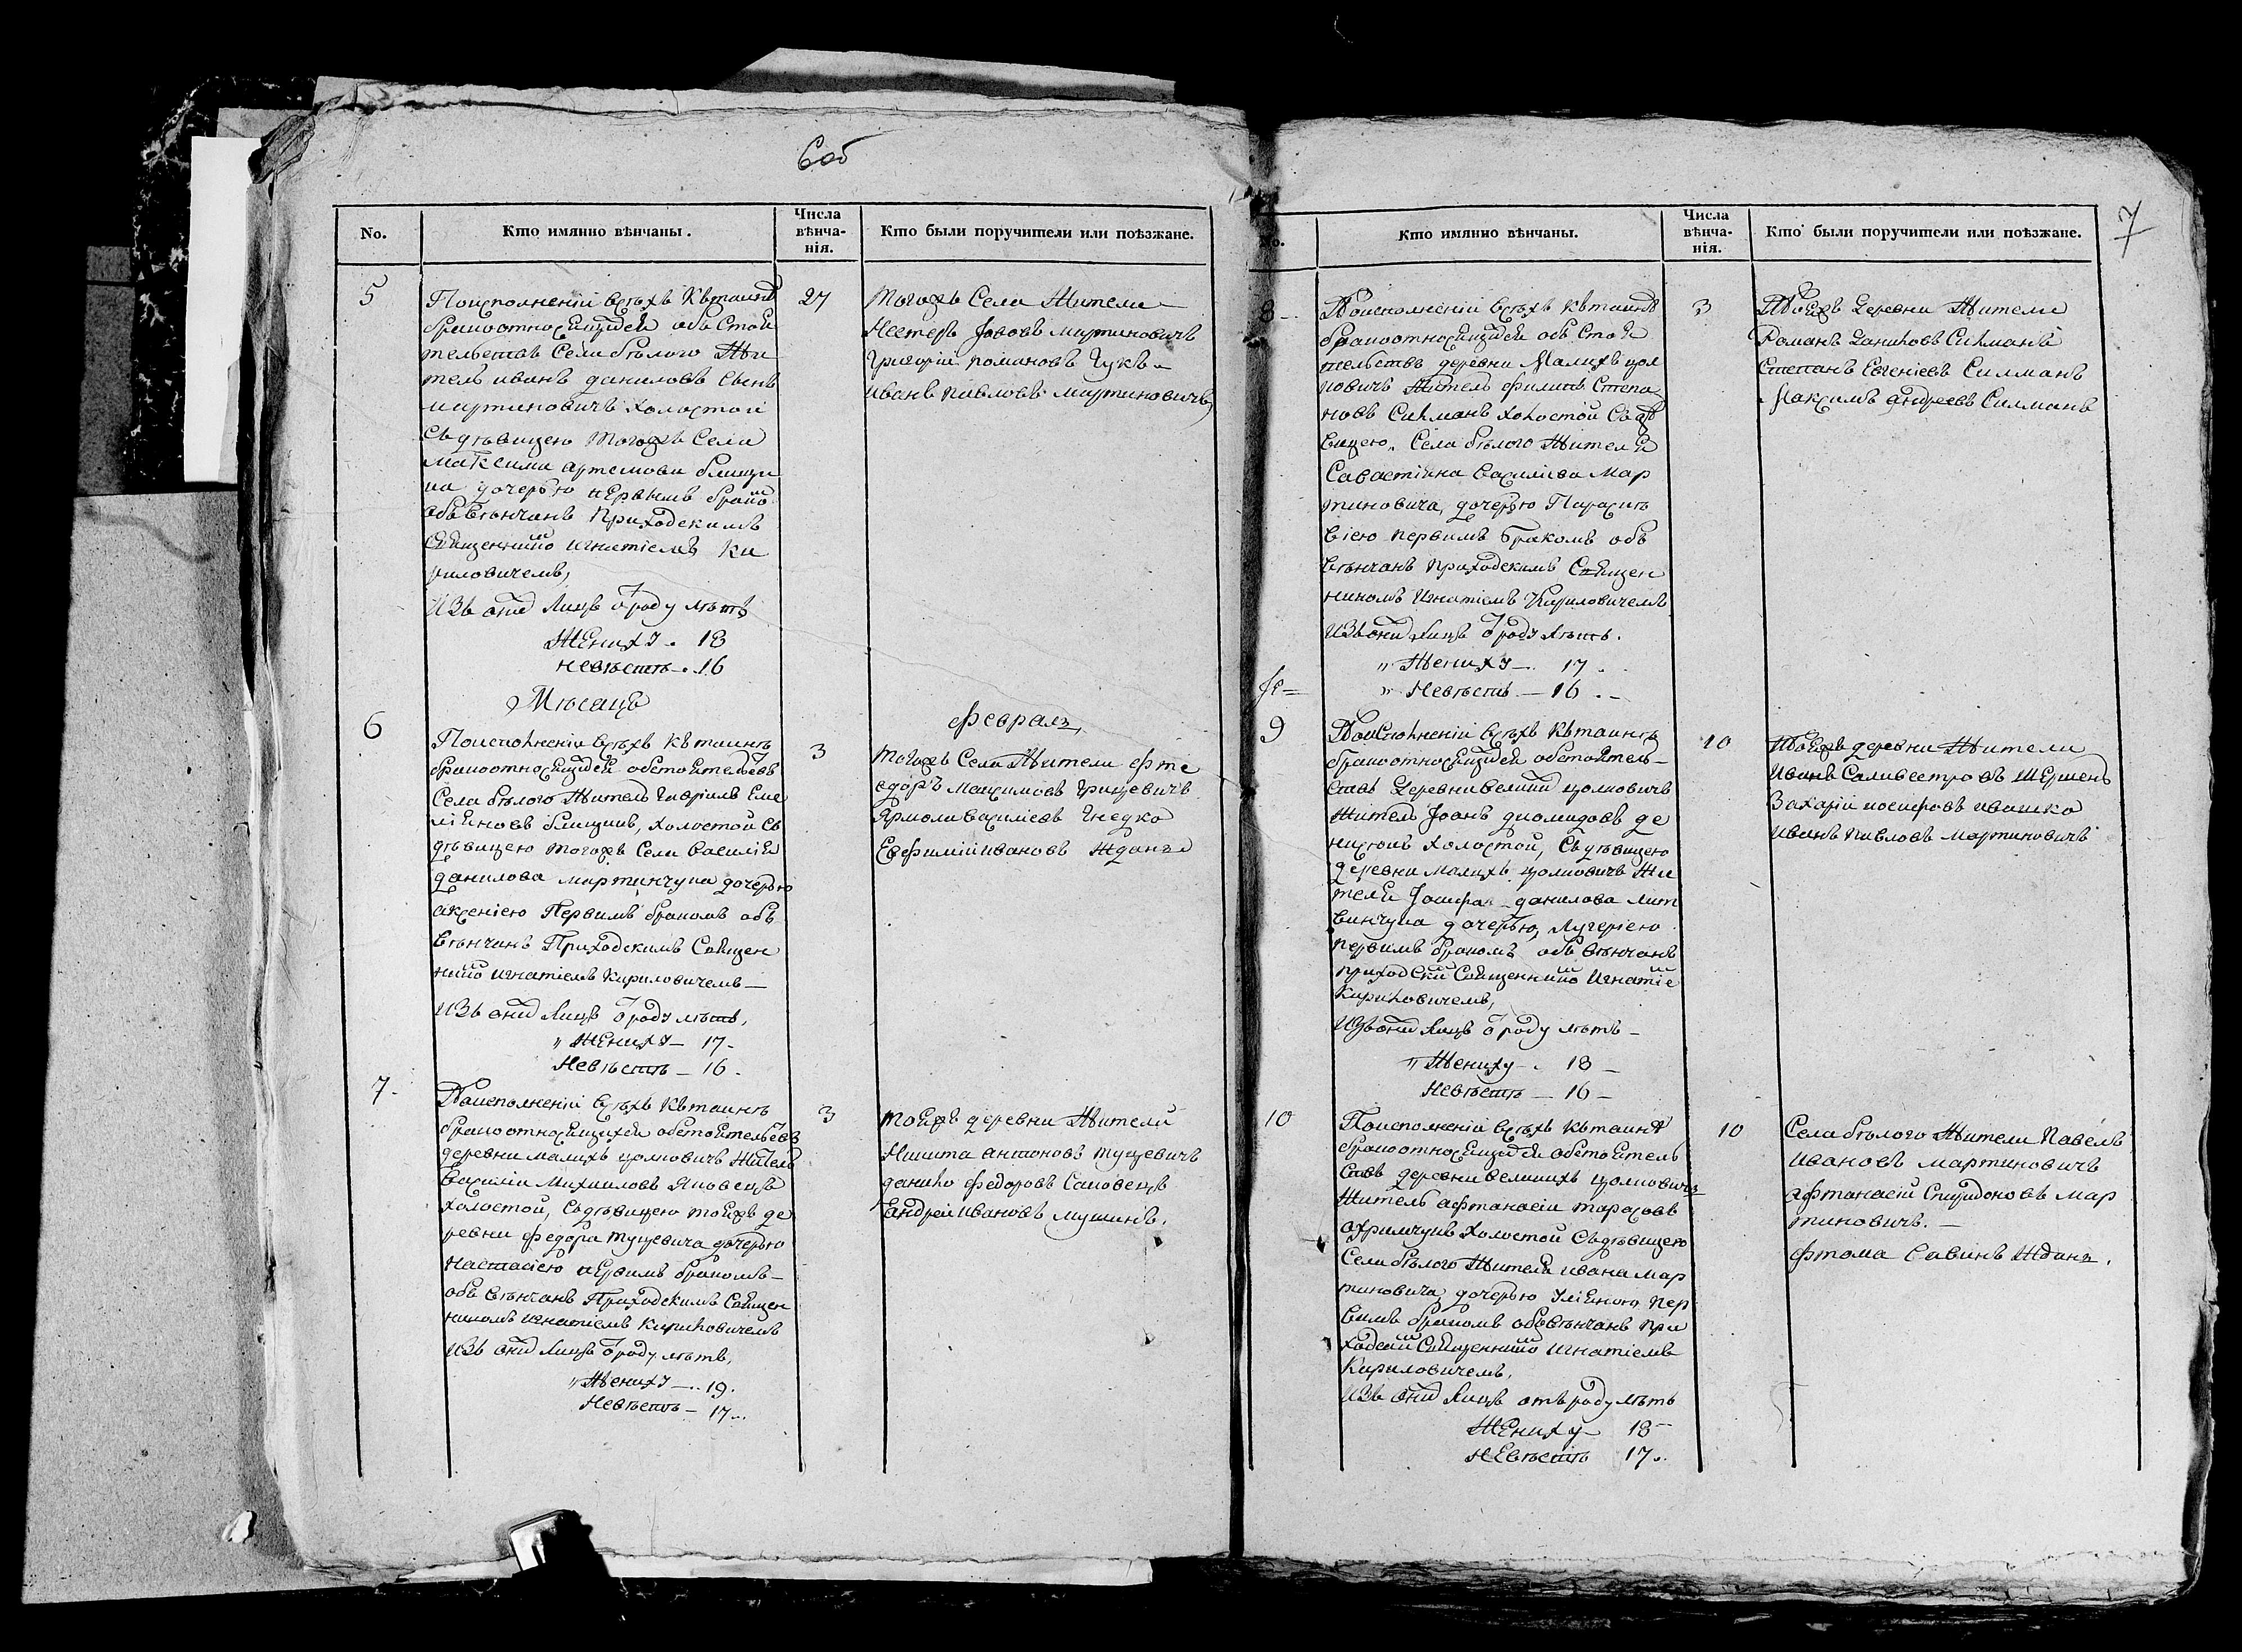 6об
No.
Кто имянно вѣнчаны.
Числа
вѣнча-
нія.
Кто были поручители или поѣзжане.
5
Поисполненіи всѣхъ къ таинств
бракоотносящихся объ стоя
тельствъ Села бѣлого Жи
тель иванъ даниловъ сынъ
мартиновичъ холостой
съдѣвицею тогожъ Села
максима артемова
дочерью первымъ брако
объ вѣнчанъ приходскимъ
Священнико игнатіемъ Ки
риловичемъ,
Изъ онихъ Лицъ Ѿроду лѣтъ
Жениху . 18
невѣстѣ . 16
27
тогожъ Села Жители
Нестеръ Іововъ мартиновичъ
григорій романовъ Чукъ
иванъ павловъ мартиновичъ,
Мѣсяцъ
февраль,
6
Поисполненіи всѣхъ къ таинств
бракоотносящихся обстоятельствъ
Села бѣлого Житель гаврілъ Еме
ліяновъ холостой съ
дѣвицею тогожъ Села Василія
данилова мартинчука дочерью
аксеніею Первимъ бракомъ объ
вѣнчанъ Приходскимъ Священ
нико игнатіемъ Кириловичемъ —
Изъ онихъ Лицъ Ѿроду лѣтъ,
„ Жениху — 17 -
Невѣстѣ — 16 .
3
тогожъ Села Жители фте
одоръ Максимовъ Грицевичъ
Ярмола василіевъ Гнедко
Евфимій ивановъ Жданъ
7.
Поисполненіи всѣхъ къ таинств
бракоотносящихся обстоятельствъ
деревни малихъ цолковичъ Житель
василіи михаиловъ Яковецъ
холостой, Съдѣвицею тояжъ де
ревни федора туцевича дочерью
настасіею первимъ бракомъ —
объ вѣнчанъ Приходскимъ Священ
никомъ игнатіемъ Кириловичемъ
Изъ онихъ Лицъ Ѿроду лѣтъ,
„ Жениху — . 19.
Невѣстѣ — 17 .
3
тояжъ деревни Жители
Никита антоновъ туцевичъ
данило федоровъ
андрей ивановъ
7
No.
Кто имянно вѣнчаны.
Числа
вѣнча-
нія.
Кто были поручители или поѣзжане.
8 -
Поисполненіи всѣхъ къ таинств
бракоотносящихся объ Стоя
тельствъ деревни Малихъ цол
ковичъ Житель филипъ Степа
новъ Силманъ холостой Съдѣ
вицею. Села бѣлого Жителя
Савастіяна василіева Мар
тиновича, дочерью Параске
віею первимъ бракомъ объ
вѣнчанъ приходскимъ Священ
никомъ игнатіемъ Кириловичемъ
Изъ онихъ Лицъ Ѿроду лѣтъ.
„ Жениху — . 17 .
„ Невѣстѣ . — 16 . -
3
Тояжъ Деревни Жители
Романъ Даниловъ Силманъ
Степанъ Евгеніевъ Силманъ
Максимъ андреевъ Силманъ
9
Поисполненіи всѣхъ къ таинств
бракоотносящихся обстоятель-
ствъ Деревни великихъ цолковичъ
Житель Іоанъ диомидовъ де
холостой, Съдѣвицею
деревни малихъ цолковичъ Жи
теля Іосифа данилова лит
винчука дочерью, Лукеріею
первимъ бракомъ объ вѣнчанъ
приходски Священнико Игнатіе
Кириловичемъ,
Изъ онихъ Лицъ Ѿроду лѣтъ —
„ Жениху — . 18 —
Невѣстѣ — 16 —
10
Тояжъ деревни Жители
Иванъ Саливестровъ Шершень
Захарій иосифовъ ивашко
иванъ павловъ мартиновичъ
10
Поисполненіи всѣхъ къ таинств
бракоотносящихся обстоятель
ствъ деревни великихъ цолковичъ
Житель афтанасіи тарасовъ
охримчукъ холостой Съдѣвицею
Села бѣлого Жителя ивана мар
тиновича дочерью Уліяною пер
вимъ бракомъ объ вѣнчанъ при
ходски Священнико игнатіемъ
Кириловичемъ,
Изъ онихъ Лицъ отъ роду лѣтъ
Жениху — 18 —
невѣстѣ 17 .
10
Села бѣлого Жители Павелъ
Ивановъ мартиновичъ
афтанасій Спиридоновъ мар
тиновичъ. —
фтома Савинъ Жданъ.